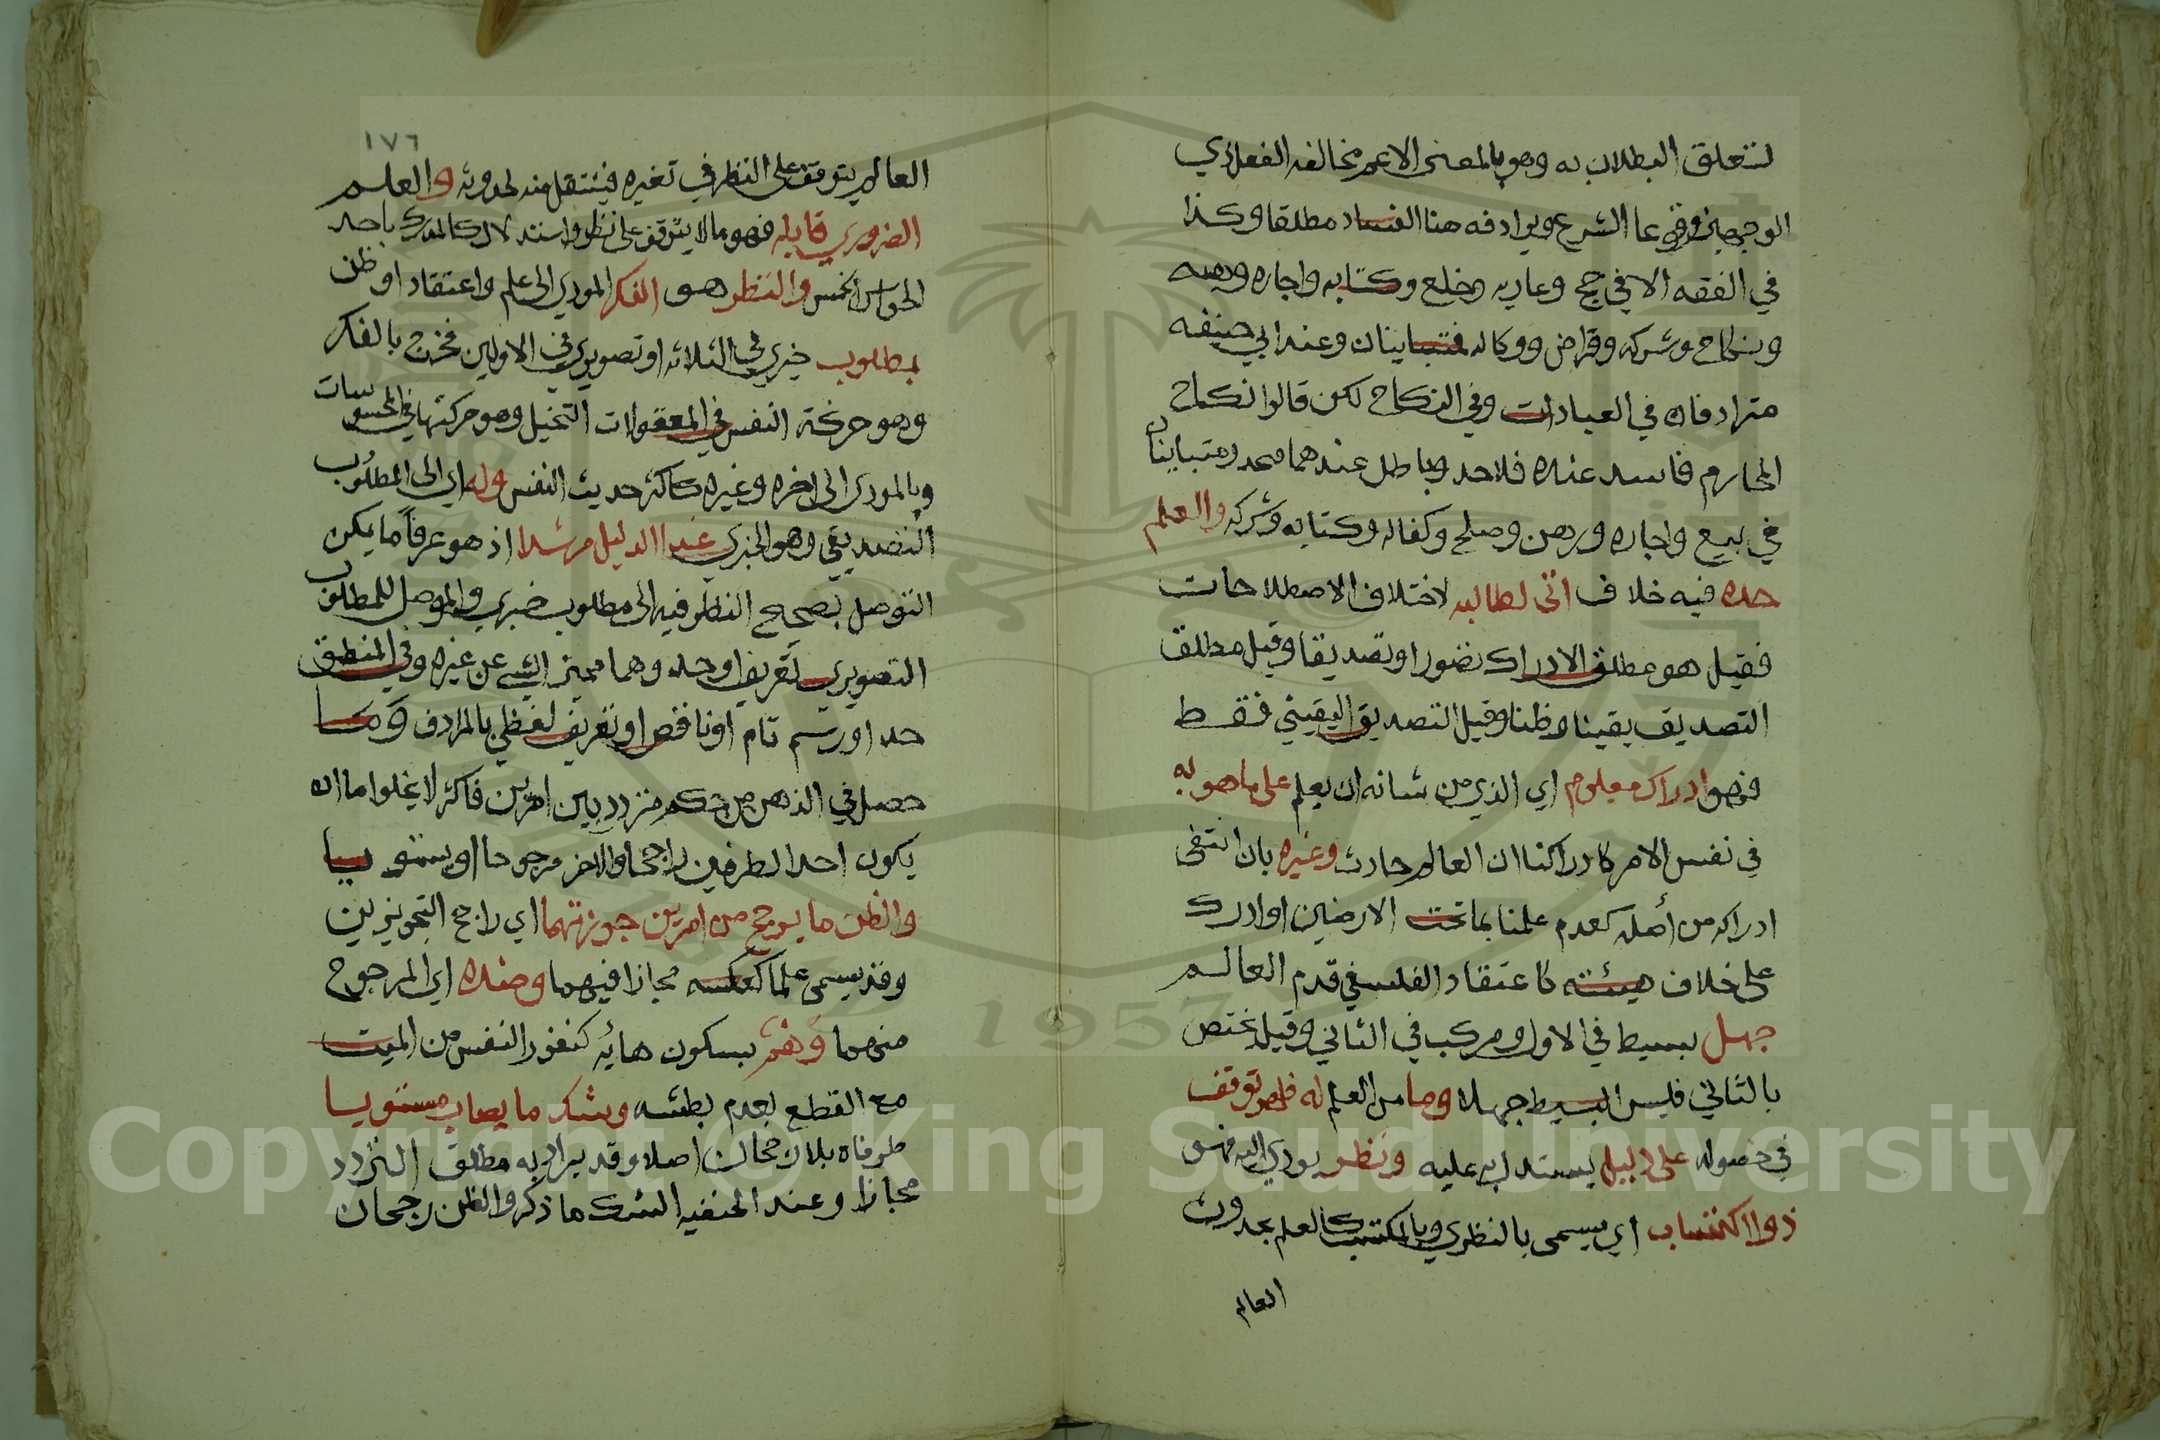 لتعلق البطلان به وهو بالمعنى الاعم مخالفه الفعل ذي
الوجهين وقوعا الشرع ويرادفه هنا الفساد مطلقا وكذا
في الفقه الا في حج وعاريه وخلع وكتابه واجاره وهبه
ونكاح وشركه وقراض ووكاله فمتباينان وعند ابي حنيفه
مترادفان في العبادات وفي النكاح لكن قالوا نكاح
المحارم فاسد عنده فلا حد وباطل عندهما فيحد ومتباينان
في بيع واجاره ورهن وصلح وكفاله وكتابه وشركه والعلم
حده فيه خلاف اتى لطالبه لاختلاف الاصطلاحات
فقيل هو مطلق الادراك تصورا وتصديقا وقيل مطلق
التصديق يقينا وظنا وقيل التصديق اليقيني فقط
فهو ادراك معلوم اي الذي من شانه ان يعلم على ما هو به
في نفس الامر كادراكنا ان العالم حادث وغيره بان انتفى
ادراكه من أصله كعدم علمنا بما تحت الارضين او ادرك
على خلاف هيئته كاعتقاد الفلسفي قدم العالم
جهل بسيط في الاول ومركب في الثاني وقيل يختص
بالثاني فليس البسيط جهلا وما من العلم له فهو توقف
في حصوله على دليل يستدل به عليه ونظر يودي اليه فهو
ذو اكتساب اي يسمى بالنظري وبالمكتسب كالعلم بحدوث
العالم
١٧٦
العالم يتوقف على النظر في تغيره فينتقل منه لحدوثه والعلم
الضروري قابله فهو ما لا يتوقف على نظر واستدلال كالمدرك باحد
الحواس الخمس والنظر هو الفكر المودي الى علم واعتقاد او ظن
بمطلوب خبري في الثلاثه او تصويري في الاولين فخرج بالفكر
وهو حركة النفس في المعقولات التخيل وهو حركتها في المحسوسات
وبالمودي الى اخره وغيره كاكثر حديث النفس وله اي الى المطلوب
التصديقي وهو الخبري غدا الدليل مرشدا اذ هو عرفاً ما يمكن
التوصل بصحيح النظر فيه الى مطلوب خبري والموصل للمطلوب
التصويري تعريف او حد وهما مميز الشي عن غيره وفي المنطق
حد او رسم تام او ناقص او تعريف لفظي بالمرادف وما
حصل في الذهن من حكم متردد بين امرين فاكثر لا يخلوا ما ان
يكون احد الطرفين راجحا والاخر مرجوحا او يستويا
والظن ما يرجح من امرين جوزتهما اي راجح التجويزين
وقد يسمى علما كعكسه مجازا فيهما وضده اي المرجوح
منهما وهم بسكون هائه كنفور النفس من الميت
مع القطع بعدم بطشه وشك ما يصاب مستويا
طرفاه بلا رجحان اصلا وقد يراد به مطلق التردد
مجازا وعند الحنفيه الشك ما ذكر والظن رجحان
Copyright © King Saud University
1957